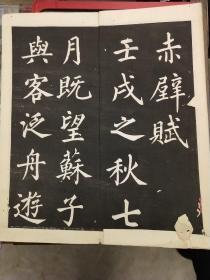 赤壁賦
壬戌之秋七
月既望蘇子
與客泛舟遊